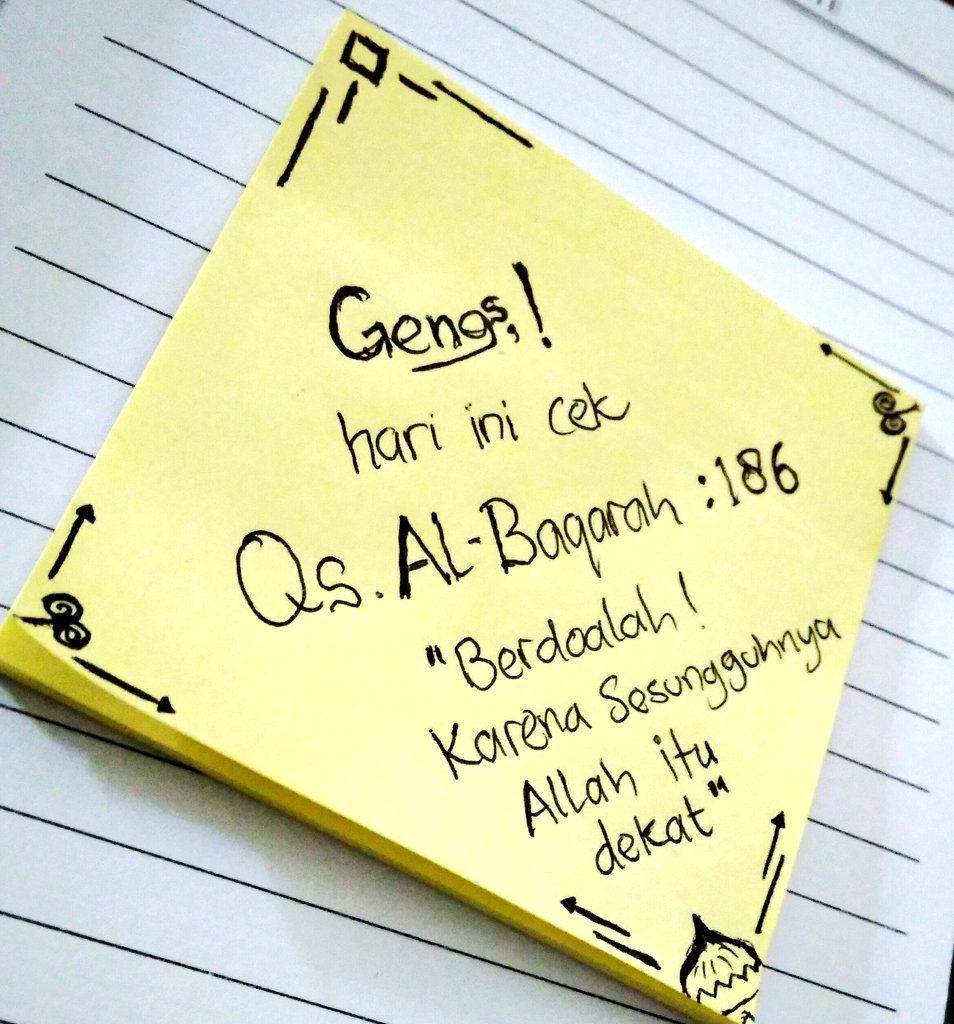 Gengs,!
hari ini cek
Qs. AL-Baqarah : 186
"Berdoalah!
Karena Sesungguhnya
Allah itu
dekat"